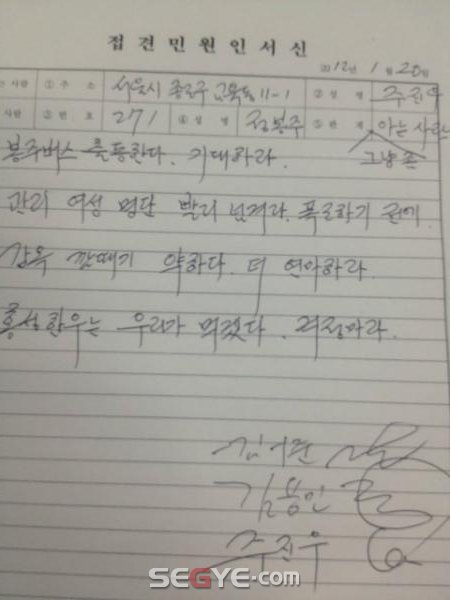 접견민원인서신
2012년 1월 20일
① 주 소 서울시 종로구 교북동 11-1 ② 성 명 주진우
② 번 호 271 ④ 성 명 정봉주 ⑤ 관 계 아는 사람
그냥 존
봉주버스 출동한다. 기대하라.
관리 여성 명단 빨리 넘겨라. 폭로하기 전에.
감옥 깔때기 약하다. 더 연마하라.
홍성한우는 우리가 먹겠다. 걱정마라.
김어준
김용민
주진우
SEGYE.com